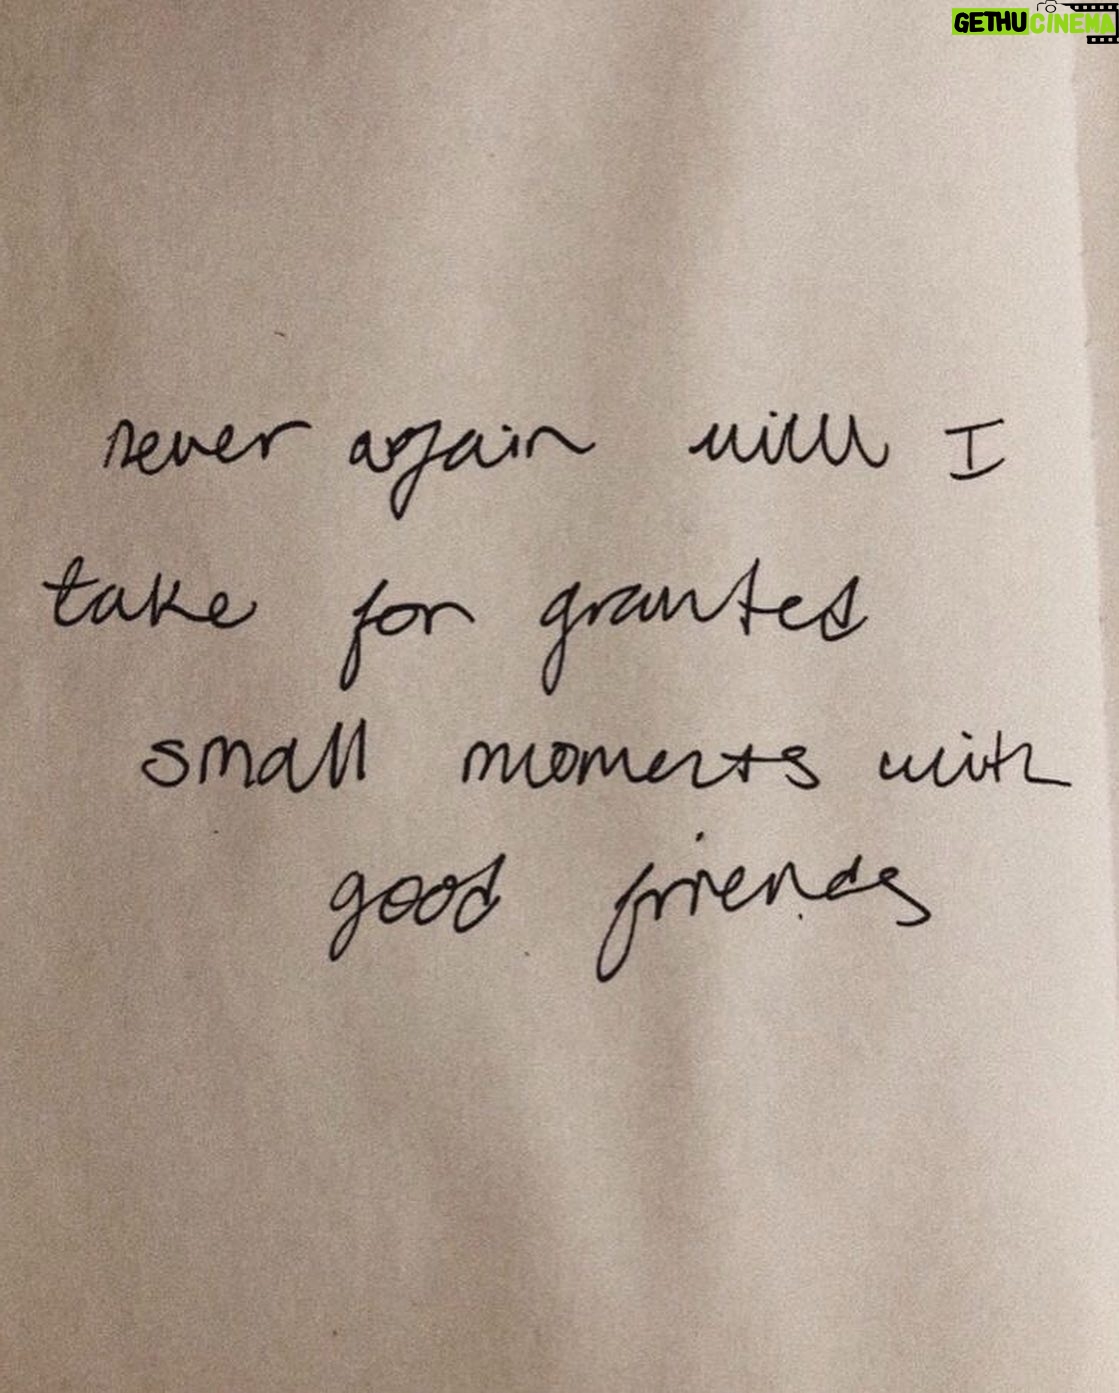 GETHUCINEMA
never again will I
take for granted
small moments with
good friends